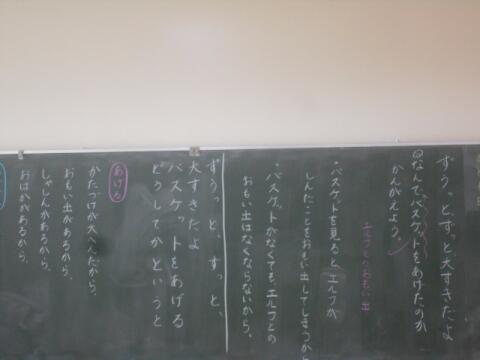 ずうっと、ずっと大すきだよ
Qなんで、バスケットをあげたのか
かんがえよう。
エルフとのおもい出
・バスケットを見ると、エルフが
しんだことをおもい出してしまうから
・バスケットがなくても、エルフとの
おもい出はなくならないから。
ずうっと、ずっと、
大すきだよ
バスケットをあげる
どうしてかというと
あげる
かたづけが大へんだから、
おもい出があるから、
しゃしんがあるから、
おはかがあるから、